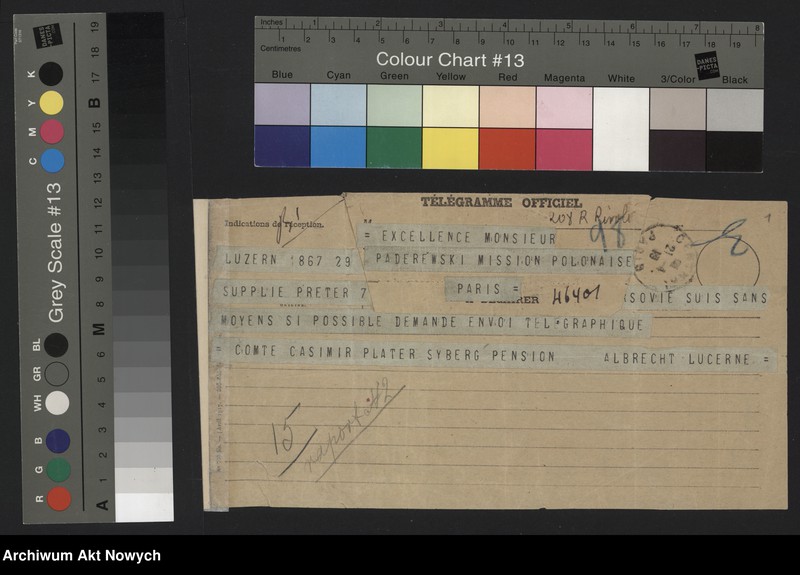 Inches 1 2 3 4 5 6 7 8
1 2 3 4 5 6 7 8 9 10 11 12 13 14 15 16 17 18 19
Centimetres
Colour Chart #13
DANES PICTA
Blue Cyan Green Yellow Red Magenta White 3/Color Black
Grey Scale #13
DANES PICTA
C M Y K
R G B WH GR BL
A 1 2 3 4 5 6 M 8 9 10 11 12 13 14 15 B 17 18 19
TÉLÉGRAMME OFFICIEL
Indications de réception.
208 R
98
1
= EXCELLENCE MONSIEUR
LUZERN 1867 29 PADEREWSKI MISSION POLONAISE
PARIS
SUPPLIE PRETER 7 PARIS = 46401 SOVIE SUIS SANS
MOYENS SI POSSIBLE DEMANDE ENVOI TEL GRAPHIQUE
= COMTE CASIMIR PLATER SYBERG PENSION ALBRECHT LUCERNE =
15
Archiwum Akt Nowych